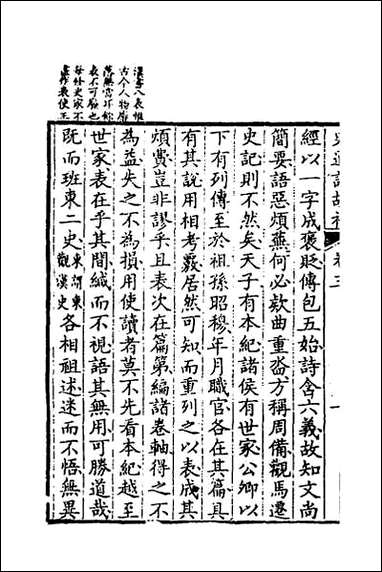 史通訓故補 卷三
經以一字成褒貶傳包五始詩含六義故知文尚
簡要語惡煩蕪何必欵曲重沓方稱周備觀馬遷
史記則不然矣天子有本紀諸侯有世家公卿以
下有列傳至於祖孫昭穆年月職官各在其篇具
有其說用相考覈居然可知而重列之以表成其
煩費豈非謬乎且表次在篇第編諸卷軸得之不
為益失之不為損用使讀者莫不先看本紀越至
世家表在乎其間緘而不視語其無用可勝道哉
既而班東二史東謂東觀漢史各相祖述迷而不悟無異
漢書八表惟
古今人物
無當耳餘
表不可廢也
史家不
盡作表使